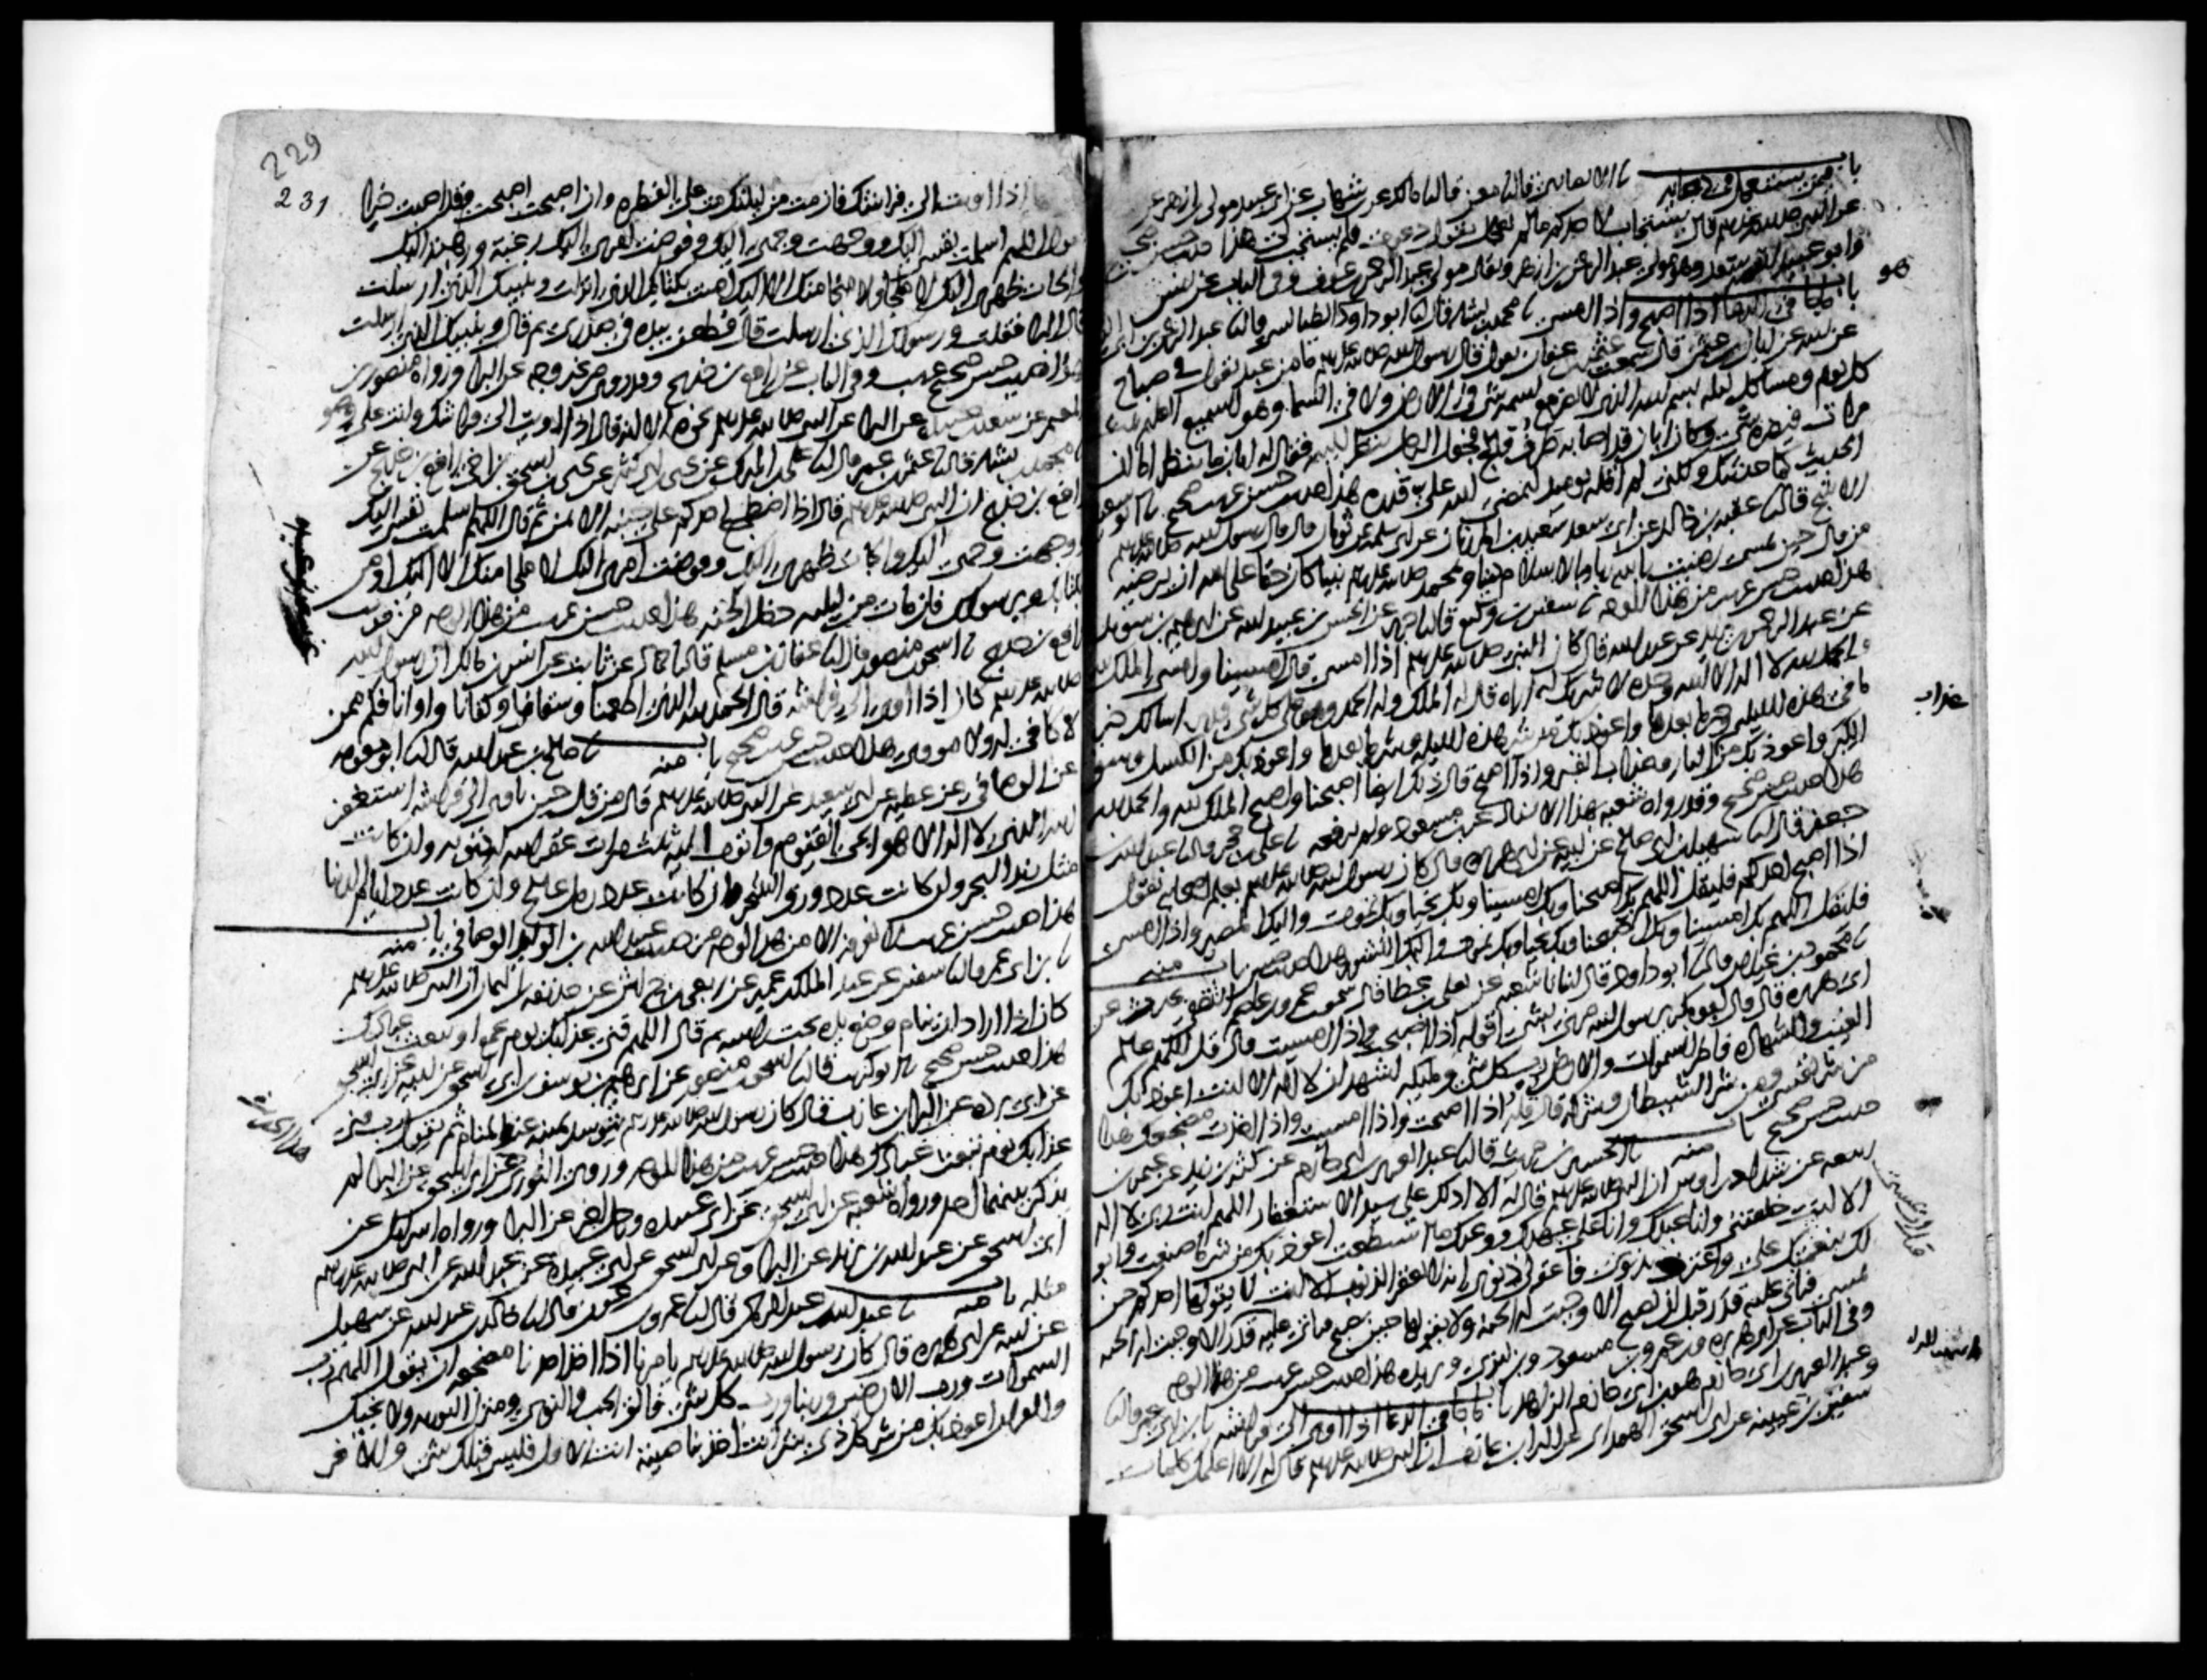 باب فيمن يستعجل في دعائه نا الانصاري قال نا معن قال نا مالك عن ابن شهاب عن ابي عبيد مولى ابن ازهر عن
عن النبي صلى الله عليه وسلم قال يستجاب لاحدكم ما لم يعجل يقول دعوت فلم يستجب لي هذا حديث حسن صحيح
وابو عبيد اسمه سعد وهو مولى عبد الرحمن بن ازهر ويقال مولى عبد الرحمن بن عوف وفي الباب عن انس
باب ما جا في الدعا اذا اصبح واذا امسى نا محمد بن بشار قال نا ابو داود الطيالسي قال نا عبد الرحمن بن ابي
عن ابيه عن ابان بن عثمن قال سمعت عثمن بن عفان يقول قال رسول الله صلى الله عليه وسلم ما من عبد يقول في صباح
كل يوم ومسا كل ليله بسم الله الذي لا يضر مع اسمه شي في الارض ولا في السما وهو السميع العليم ثلث
مرات فيضره شي وكان ابان قد اصابه طرف فالج فجعل الرجل ينظر اليه فقال له ابان ما تنظر اما ان
الحديث كما حدثتك ولكني لم اقله يوميذ ليمضي الله علي قدره هذا حديث حسن غريب صحيح نا ابو سعيد
الاشج قال نا عقبه بن خالد عن ابي سعد سعيد بن المرزبان عن ابي سلمه عن ثوبان قال قال رسول الله صلى الله عليه وسلم
من قال حين يمسي رضيت بالله ربا وبالاسلام دينا وبمحمد صلى الله عليه وسلم نبيا كان حقا على الله ان يرضيه
هذا حديث حسن غريب من هذا الوجه نا سفين بن وكيع قال نا جرير عن الحسن بن عبيد الله عن ابرهيم بن سويد
عن عبد الرحمن بن يزيد عن عبد الله قال كان النبي صلى الله عليه وسلم اذا امسى قال امسينا وامسى الملك لله
والحمد لله لا اله الا الله وحده لا شريك له اراه قال له الملك وله الحمد وهو على كل شي قدير اسالك خير
ما في هذه الليله وخير ما بعدها واعوذ بك من شر هذه الليله وشر ما بعدها واعوذ بك من الكسل وسو
الكبر واعوذ بك من النار وعذاب القبر واذا اصبح قال ذلك ايضا اصبحنا واصبح الملك لله والحمد لله
هذا حديث حسن صحيح وقد رواه شعبه بهذا الاسناد عن ابن مسعود ولم يرفعه نا علي بن حجر قال نا عبد الله بن
جعفر قال نا سهيل بن ابي صالح عن ابيه عن ابي هريره قال كان رسول الله صلى الله عليه وسلم يعلم اصحابه يقول
اذا اصبح احدكم فليقل اللهم بك اصبحنا وبك امسينا وبك نحيا وبك نموت واليك المصير واذا امسى
فليقل اللهم بك امسينا وبك اصبحنا وبك نحيا وبك نموت واليك النشور هذا حديث حسن باب منه
نا محمود بن غيلان قال نا ابو داود قال انبانا شعبه عن يعلى بن عطا قال سمعت عمرو بن عاصم الثقفي يحدث عن
ابي هريره قال قال ابو بكر يرسول الله مرني بشي اقوله اذا اصبحت واذا امسيت قال قل اللهم عالم
الغيب والشهاده فاطر السموات والارض رب كل شي ومليكه اشهد ان لا اله الا انت اعوذ بك
من شر نفسي ومن شر الشيطان وشركه قال قله اذا اصبحت واذا امسيت واذا اخذت مضجعك هذا
حديث حسن صحيح باب منه نا الحسين بن حريث قال نا عبد العزيز بن ابي حازم عن كثير بن زيد عن عثمن بن
ربيعه عن شداد بن اوس ان النبي صلى الله عليه وسلم قال له الا ادلك على سيد الاستغفار اللهم انت ربي لا اله
الا انت خلقتني وانا عبدك وانا على عهدك ووعدك ما استطعت اعوذ بك من شر ما صنعت وابو
لك بنعمتك علي واعترف بذنوبي فاغفر لي ذنوبي انه لا يغفر الذنوب الا انت لا يقولها احدكم حين
يمسي فياتي عليه قدر قبل ان يصبح الا وجبت له الجنه ولا يقولها حين يصبح فياتي عليه قدر الا وجبت له الجنه
وفي الباب عن ابي هريره وابن عمر وابن مسعود وابن ابزى وبريده هذا حديث حسن غريب من هذا الوجه
وعبد العزيز بن ابي حازم هو ابن ابي حازم الزاهد باب ما جا في الدعا اذا اوى الى فراشه نا ابن ابي عمر قال نا
سفين بن عيينه عن ابي اسحق الهمداني عن البرا بن عازب ان النبي صلى الله عليه وسلم قال له الا اعلمك كلمات
هو
عذاب
229
231
اذا اويت الى فراشك فان مت من ليلتك مت على الفطره وان اصبحت اصبحت وقد اصبت خيرا
تقول اللهم اسلمت نفسي اليك ووجهت وجهي اليك وفوضت امري اليك رغبة ورهبة اليك
والجات ظهري اليك لا ملجا ولا منجا منك الا اليك امنت بكتابك الذي انزلت ونبيك الذي ارسلت
قال البرا فقلت وبرسولك الذي ارسلت قال فطعن بيده في صدري ثم قال ونبيك الذي ارسلت
هذا حديث حسن صحيح غريب وفي الباب عن رافع بن خديج وقد روى من غير وجه عن البرا ورواه منصور بن
المعتمر عن سعد بن عبيده عن البرا عن النبي صلى الله عليه وسلم نحوه الا انه قال اذا اويت الى فراشك وانت على وضو
نا محمد بن بشار قال نا عثمن بن عمر قال نا علي بن المبرك عن يحيى بن ابي كثير عن يحيى بن اسحق بن اخي رافع بن خديج عن
رافع بن خديج ان النبي صلى الله عليه وسلم قال اذا اضطجع احدكم على جنبه الايمن ثم قال اللهم اسلمت نفسي اليك
ووجهت وجهي اليك والجات ظهري اليك وفوضت امري اليك لا ملجا منك الا اليك اومن
بكتابك وبرسولك فان مات من ليلته دخل الجنه هذا حديث حسن غريب من هذا الوجه من حديث
رافع بن خديج نا اسحق بن منصور قال نا عفان بن مسلم قال نا حماد عن ثابت عن انس بن مالك ان رسول الله
صلى الله عليه وسلم كان اذا اوى الى فراشه قال الحمد لله الذي اطعمنا وسقانا وكفانا واوانا فكم ممن
لا كافي له ولا مووي هذا حديث حسن غريب صحيح باب منه نا صالح بن عبد الله قال نا ابو معويه
عن الوصافي عن عطيه عن ابي سعيد عن النبي صلى الله عليه وسلم قال من قال حين ياوي الى فراشه استغفر
الله الذي لا اله الا هو الحي القيوم واتوب اليه ثلث مرات غفر الله له ذنوبه ولو كانت
مثل زبد البحر ولو كانت عدد ورق الشجر وان كانت عدد رمل عالج وان كانت عدد ايام الدنيا
هذا حديث حسن غريب لا نعرفه الا من هذا الوجه من حديث عبيد الله بن الوليد الوصافي باب منه
نا ابن ابي عمر قال نا سفين عن عبد الملك بن عمير عن ربعي بن حراش عن حذيفه بن اليمان ان النبي صلى الله عليه وسلم
كان اذا اراد ان ينام وضع يده تحت راسه ثم قال اللهم قني عذابك يوم تجمع او تبعث عبادك
هذا حديث حسن صحيح نا ابو كريب قال نا اسحق بن منصور عن ابرهيم بن يوسف بن ابي اسحق عن ابيه عن ابي اسحق
عن ابي برده عن البرا بن عازب قال كان رسول الله صلى الله عليه وسلم يتوسد يمينه عند المنام ثم يقول رب قني
عذابك يوم تبعث عبادك هذا حديث حسن غريب من هذا الوجه وروى الثوري هذا عن ابي اسحق عن البرا لم
يذكر بينهما احد ورواه شعبه عن ابي اسحق عن ابي عبيده ورجل اخر عن البرا ورواه اسرايل عن
ابي اسحق عن عبد الله بن يزيد عن البرا وعن ابي اسحق عن ابي عبيده عن عبد الله عن النبي صلى الله عليه وسلم
مثله باب منه نا عبد الله بن عبد الرحمن قال نا عمرو بن عون قال نا خالد بن عبد الله عن سهيل
عن ابيه عن ابي هريره قال كان رسول الله صلى الله عليه وسلم يامرنا اذا اخذ احدنا مضجعه ان يقول اللهم رب
السموات ورب الارضين وربنا ورب كل شي فالق الحب والنوى ومنزل التوريه والانجيل
والقران اعوذ بك من شر كل ذي شر انت اخذ بناصيته انت الاول فليس قبلك شي والاخر